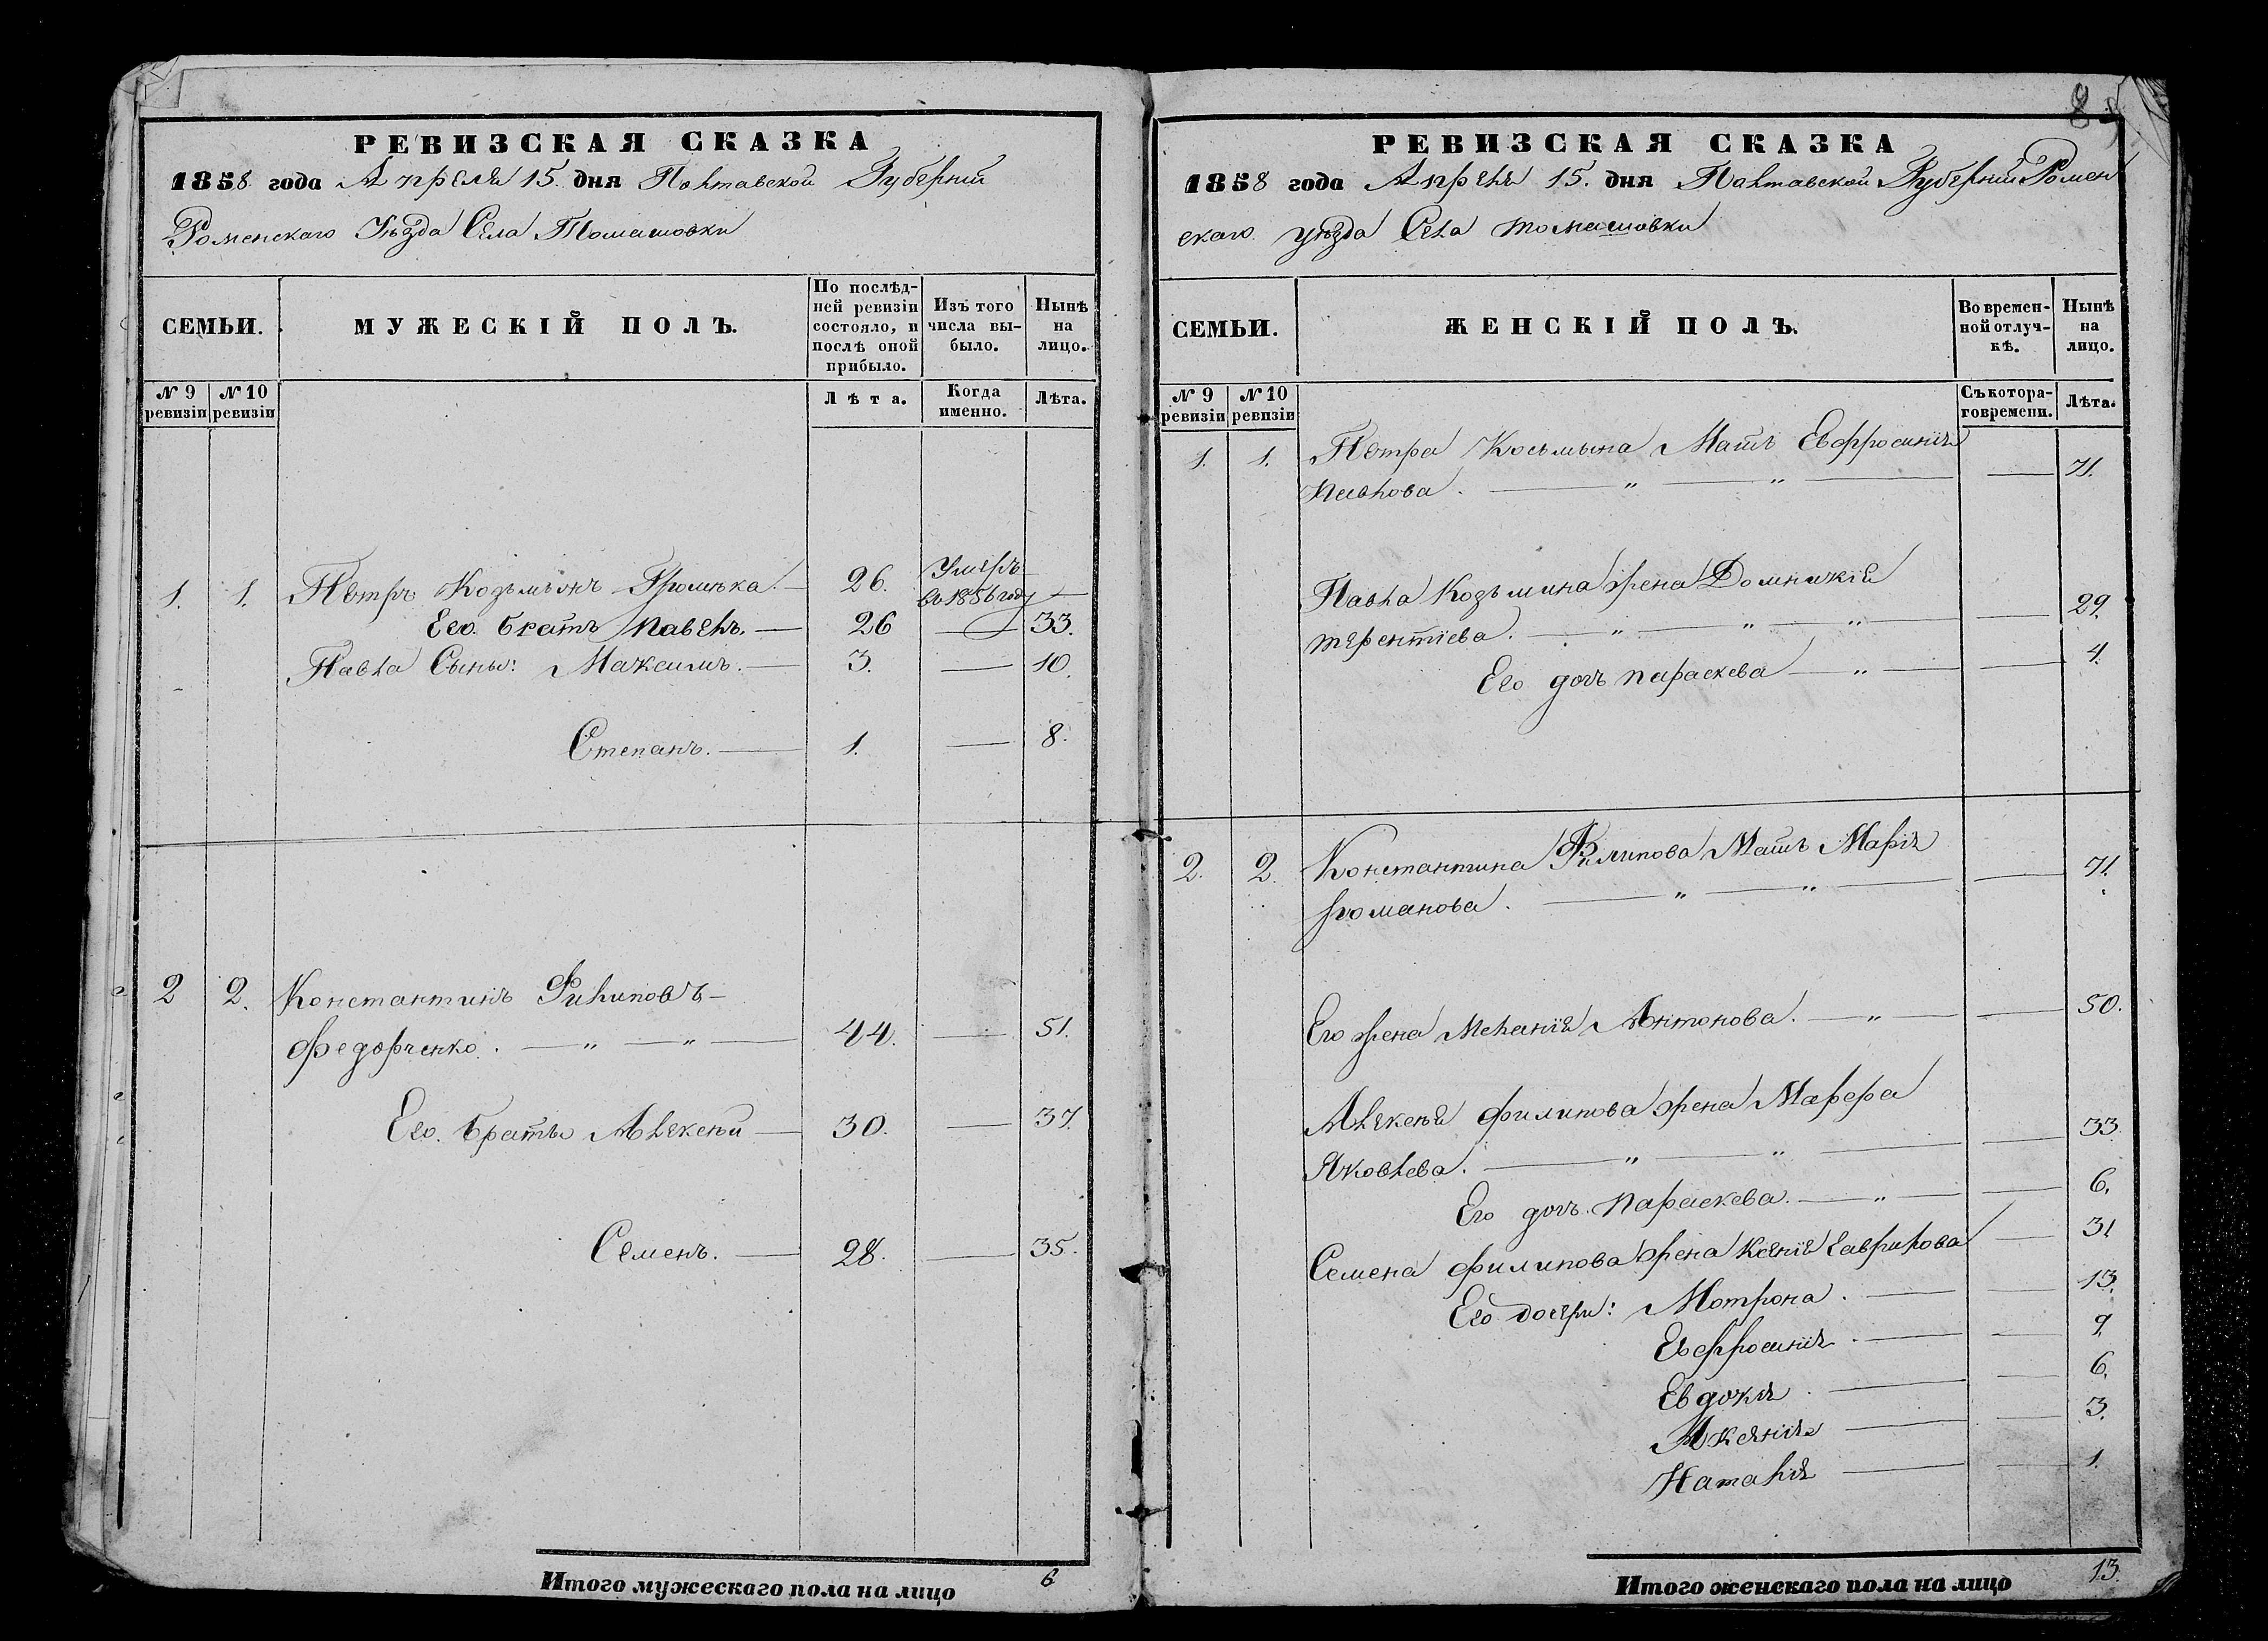 РЕВИЗСКАЯ СКАЗКА
1858 года Апреля 15. дня Полтавской Губерніи
Роменскаго Уѣзда Села Томашовки
СЕМЬИ. МУЖЕСКІЙ ПОЛЪ. По послѣдней ревизіи состояло, и послѣ оной прибыло. Изъ того числа выбыло. Нынѣ на лицо.
№ 9 ревизіи № 10 ревизіи Лѣта. Когда именно. Лѣта.
1. 1. Петръ Козьминъ Громѣка. — 26. Умеръ въ 1856 году —
Его братъ Павелъ. — 26 — 33.
Павла Сыны: Максимъ. — 3. — 10.
Степанъ. — 1. — 8.
2 2. Константинъ Филиповъ —
Федорченко. — „ — „ — 44. — 51.
Его братья Алексѣй — 30. — 37.
Семенъ. — 28. — 35.
Итого мужескаго пола на лицо 6
8
РЕВИЗСКАЯ СКАЗКА
1858 года Апреля 15. дня Полтавской Губерніи Ромен
скаго уѣзда Села томашовки
СЕМЬИ. ЖЕНСКІЙ ПОЛЪ. Во временной отлучкѣ. Нынѣ на лицо.
№ 9 ревизіи № 10 ревизіи Съ котораго времени. Лѣта.
1. 1. Петра Косьмина Мать Евфросинія
Павлова. — „ — „ — — 71.
Павла Козьмина жена Домникія
терентіева. — „ — „ — „ — — 29.
Его дочь параскева — „ — — 4.
2. 2. Константина Филипова Мать Марія
романова. — „ — „ — — 71.
Его жена Меланія Антонова. — „ — — 50.
Алексѣя филипова жена Марфа
Яковлева. — „ — „ — — 33.
Его дочь. параскева. — „ — — 6.
Семена филипова жена Ксенія гаврилова — 31
Его дочери: Мотрона. — — 13.
Евфросинія. — — 9.
Евдокія. — — 6.
Аксенія — — 3.
Наталія — — 1.
Итого женскаго пола на лицо 13.